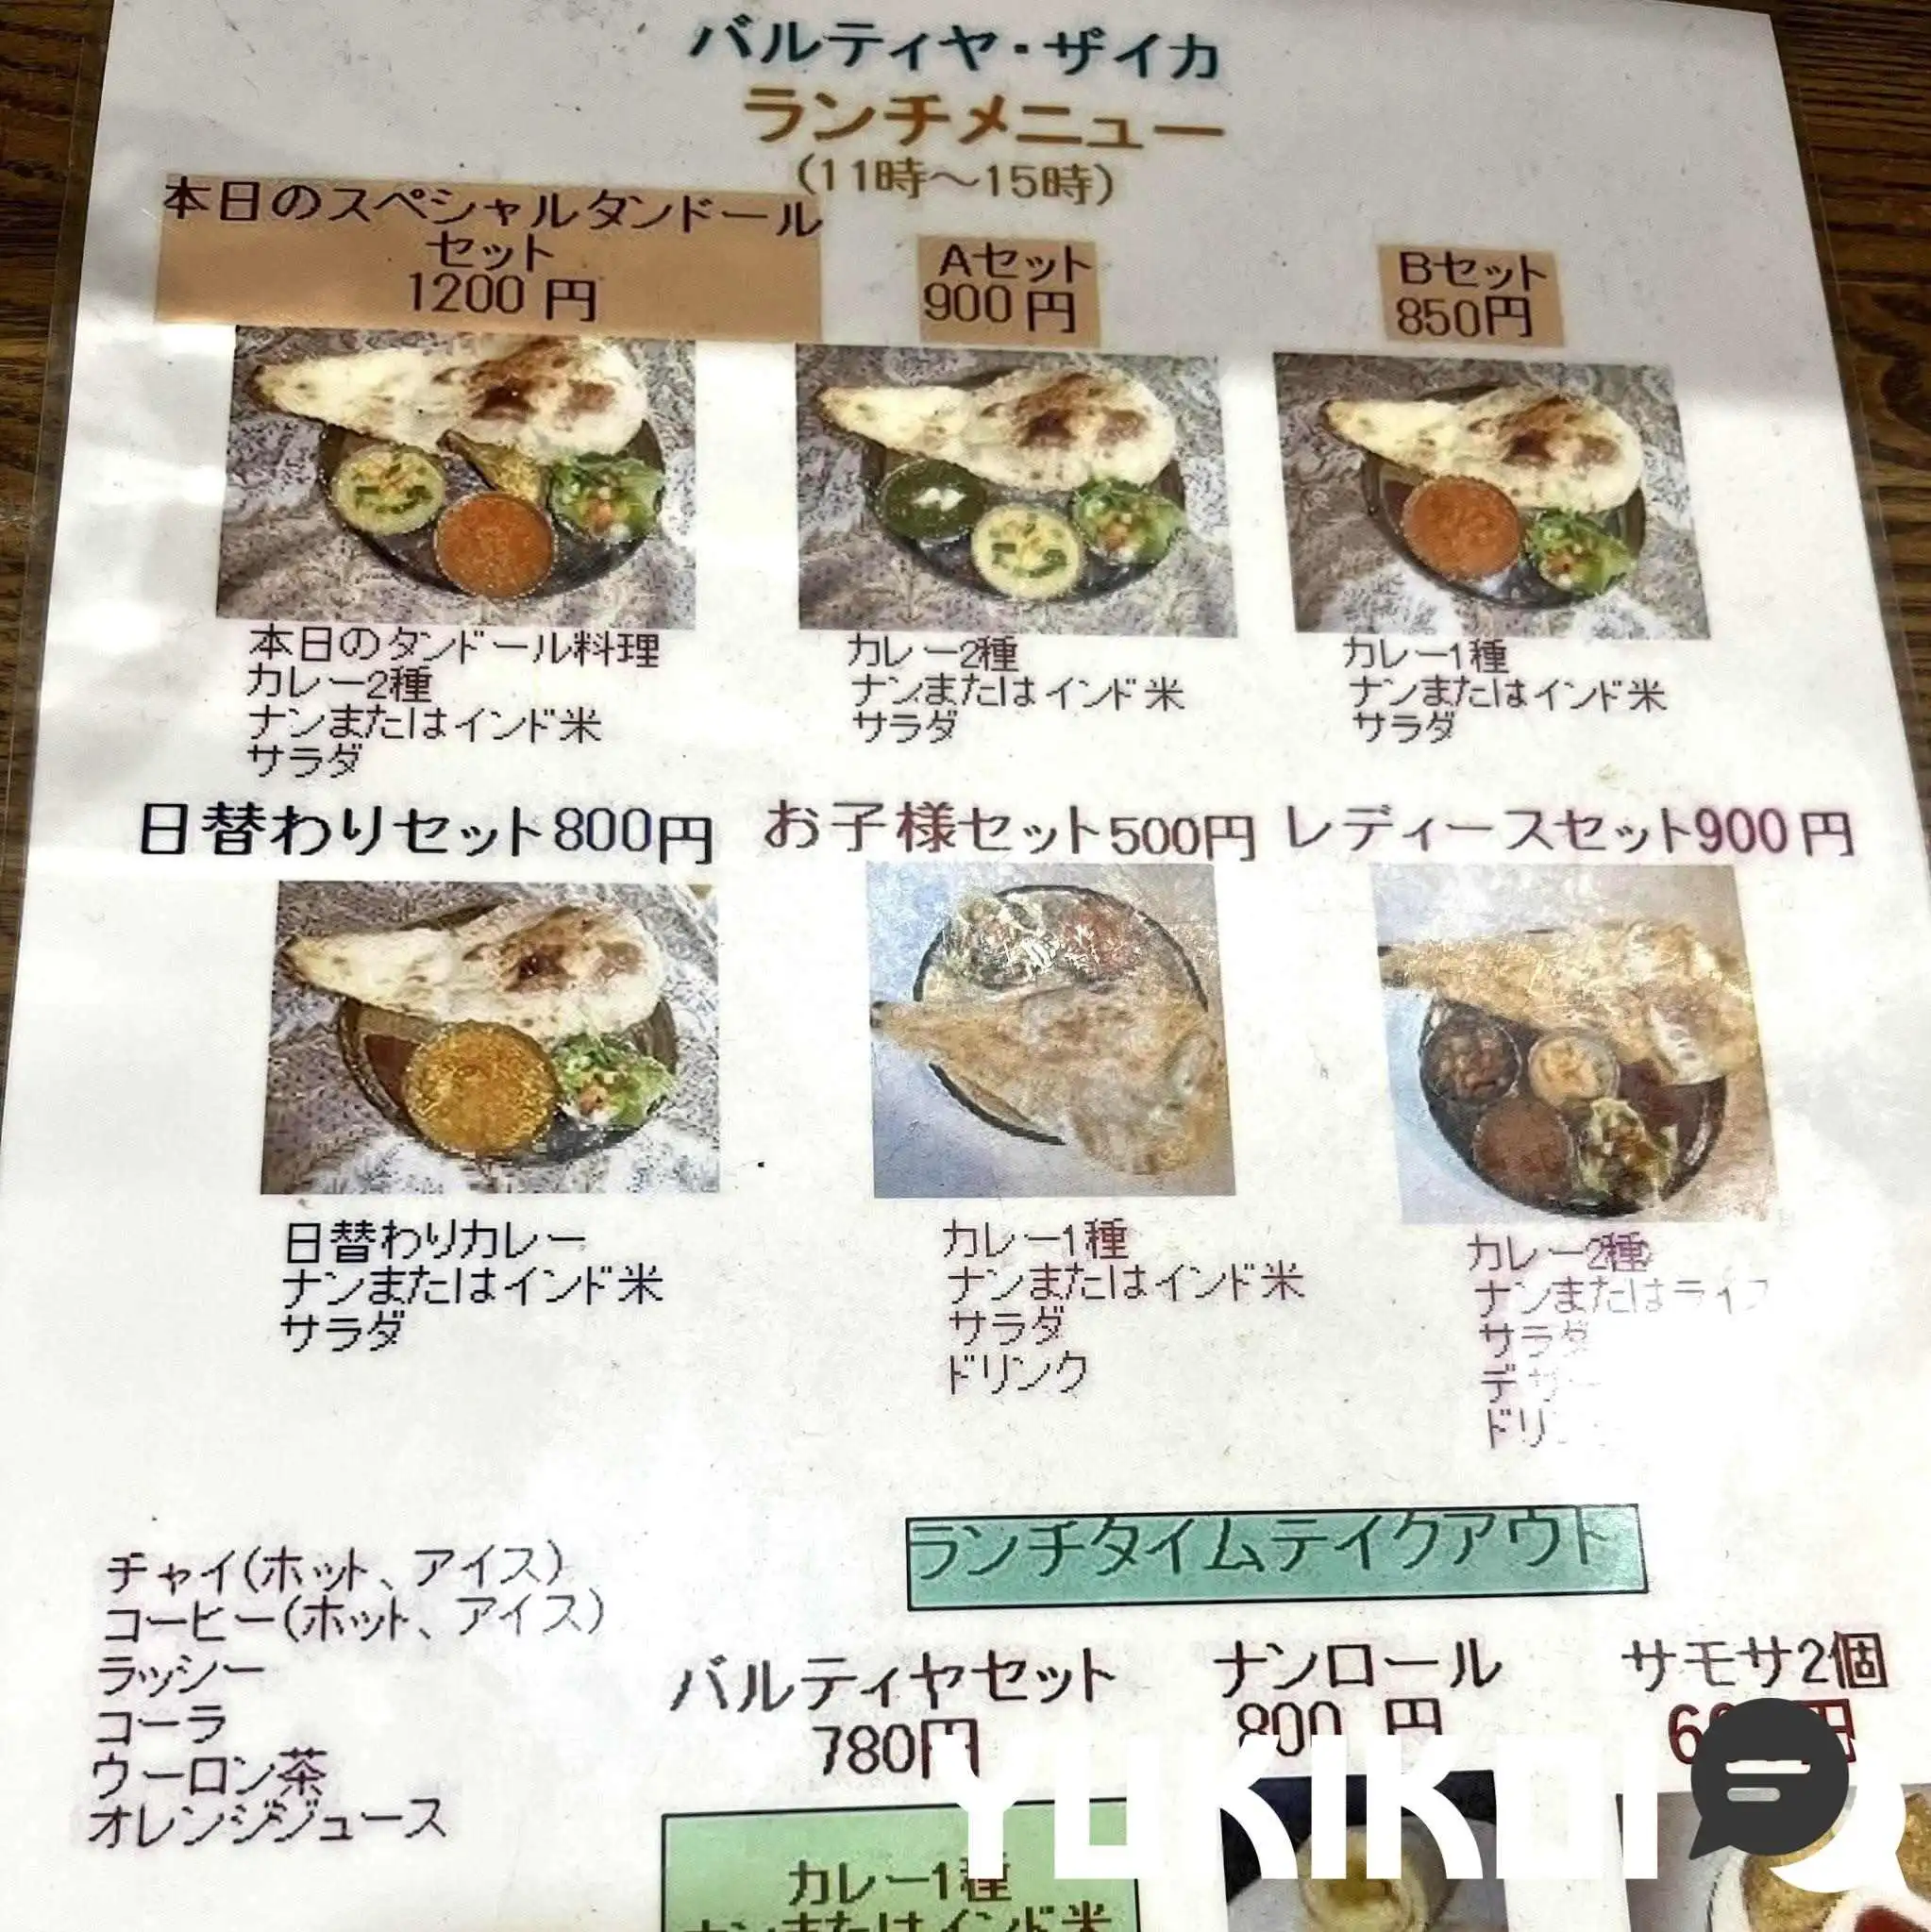 バルティヤ・ザイカ
ランチメニュー
(11時～15時)
本日のスペシャルタンドール
セット
1200円
Aセット
900円
Bセット
850円
本日のタンドール料理
カレー2種
ナンまたはインド米
サラダ
カレー2種
ナンまたはインド米
サラダ
カレー1種
ナンまたはインド米
サラダ
日替わりセット800円
お子様セット500円
レディースセット900円
日替わりカレー
ナンまたはインド米
サラダ
カレー1種
ナンまたはインド米
サラダ
ドリンク
カレー2種
ナンまたはライス
サラダ
チャイ(ホット、アイス)
コーヒー(ホット、アイス)
ラッシー
コーラ
ウーロン茶
オレンジジュース
ランチタイムテイクアウト
バルティヤセット
780円
ナンロール
800円
サモサ2個
カレー1種
ナンまたはインド米